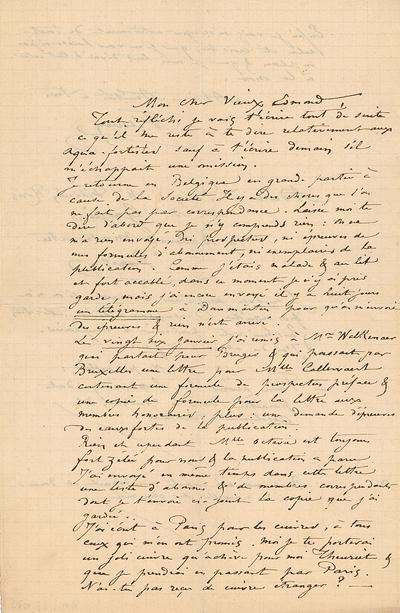 Mon cher Vieux Edmond
Tout réfléchi je vais t'écrire tout de suite
ce qu'il me reste à te dire relativement aux
Aqua-fortistes sauf à t'écrire demain s'il
m'échappait une omission.
Je retourne en Belgique en grande partie à
cause de la Société. Il y a des choses que l'on
ne fait pas par correspondance. Laisse moi te
dire d'abord que je n'y comprends rien : On ne
m'a rien envoyé, ni prospectus, ni épreuves de
mes formules d'abonnement, ni exemplaires de la
publication. Comme j'étais malade & au lit
et fort accablé, dans ce moment je n'y ai pris
garde, mais j'ai encore envoyé il y a huit jours
un télégramme à Danmartin pour qu'on m'envoie
des épreuves & rien n'est arrivé.
Le vingt six Janvier j'ai remis à Mr Walkenaer
qui partait pour Bruges & qui passait par
Bruxelles une lettre pour Mlle Callewaert
contenant une formule de prospectus préface &
une copie de formule pour la lettre aux
membres honoraires, plus : une demande d'épreuves
des eaux fortes de la publication.
Rien et cependant Mlle Octavie est toujours
fort zélée pour nous & la publication a paru.
J'ai envoyé en même temps dans cette lettre
une liste d'abonnés & de membres correspondants
dont je t'envoie ci-joint la copie que j'ai
gardée.
J'ai écrit à Paris pour les cuivres, à tous
ceux qui m'en ont promis. Moi je te porterai
un joli cuivre qu'achève pour moi Theuriet &
que je prendrai en passant par Paris.
N'as-tu pas reçu de cuivre étranger ? —